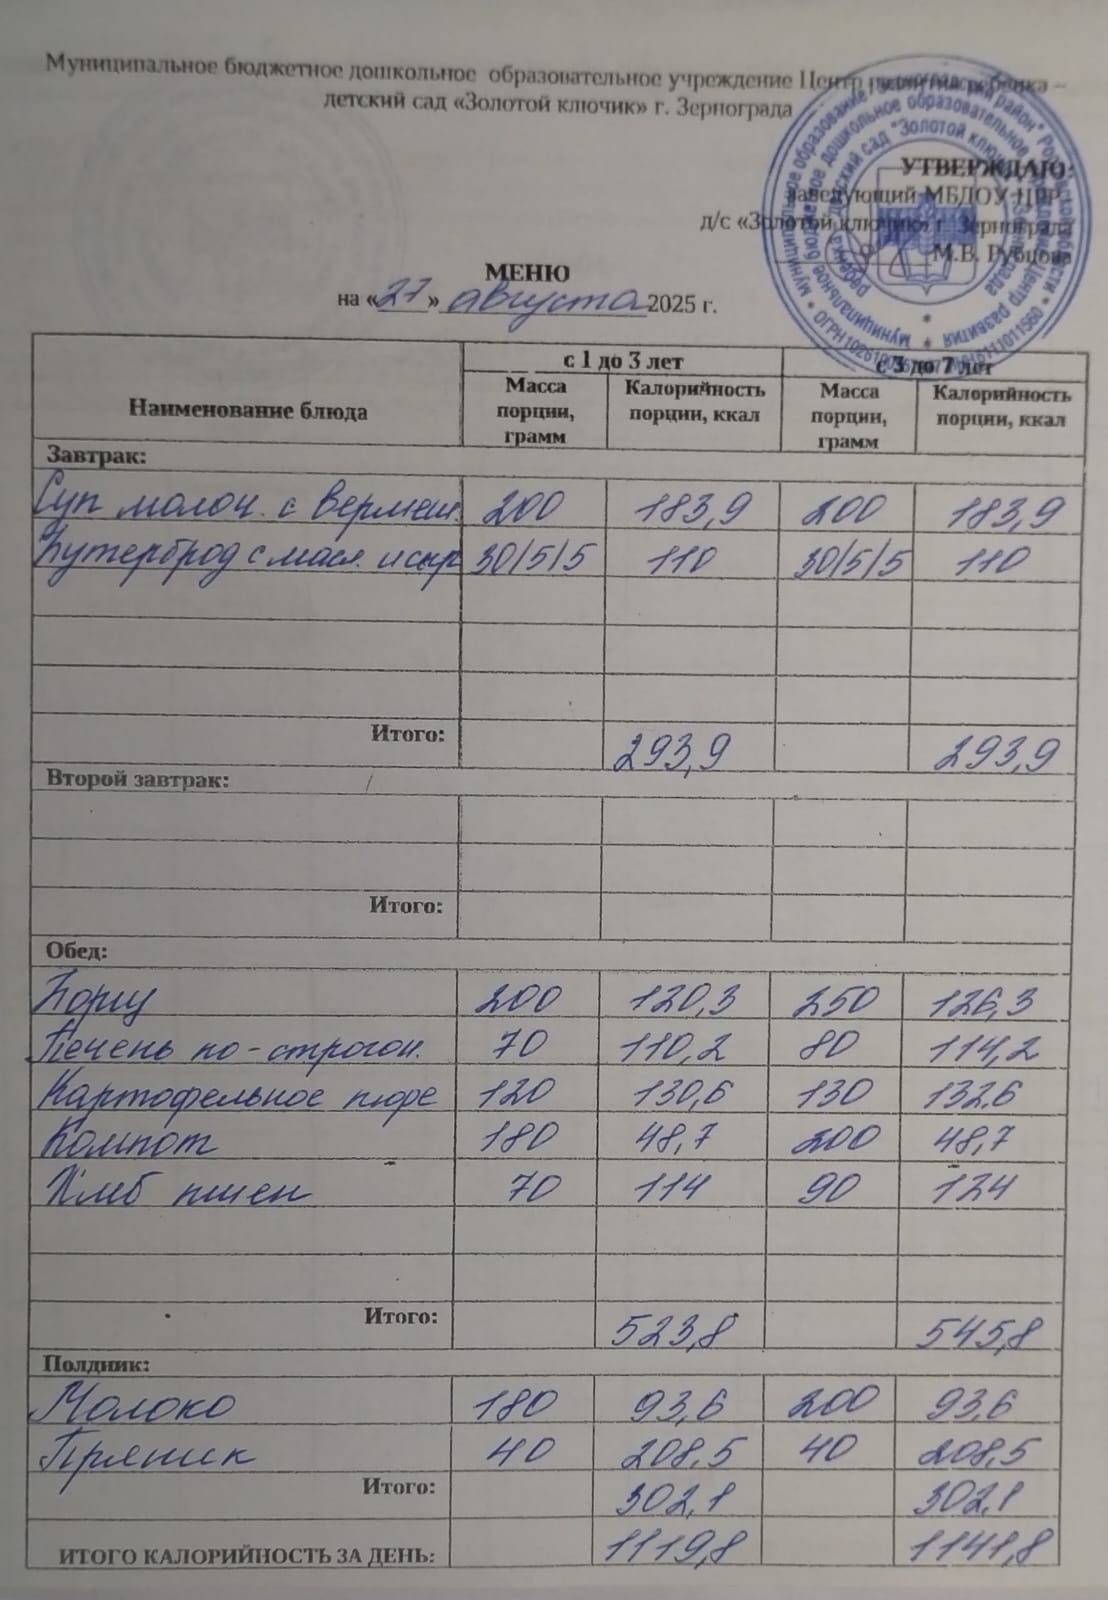 Муниципальное бюджетное дошкольное образовательное учреждение Центр развития ребенка –
детский сад «Золотой ключик» г. Зернограда
УТВЕРЖДАЮ:
заведующий МБДОУ ЦРР
д/с «Золотой ключик» г. Зернограда
М.В. Рубцова
МЕНЮ
на «27» августа 2025 г.
Наименование блюда с 1 до 3 лет с 3 до 7 лет
Масса порции, грамм Калорийность порции, ккал Масса порции, грамм Калорийность порции, ккал
Завтрак:
Суп молоч. с вермеш. 200 183,9 200 183,9
Бутерброд с масл. и сыр 30/5/5 110 30/5/5 110
Итого: 293,9 293,9
Второй завтрак:
Итого:
Обед:
Борщ 200 120,3 250 126,3
Печень по-строгон. 70 110,2 80 114,2
Картофельное пюре 120 130,6 130 132,6
Компот 180 48,7 200 48,7
Хлеб пшен 70 114 90 124
Итого: 523,8 545,8
Полдник:
Молоко 180 93,6 200 93,6
Пряник 40 208,5 40 208,5
Итого: 302,1 302,1
ИТОГО КАЛОРИЙНОСТЬ ЗА ДЕНЬ: 1119,8 1141,8